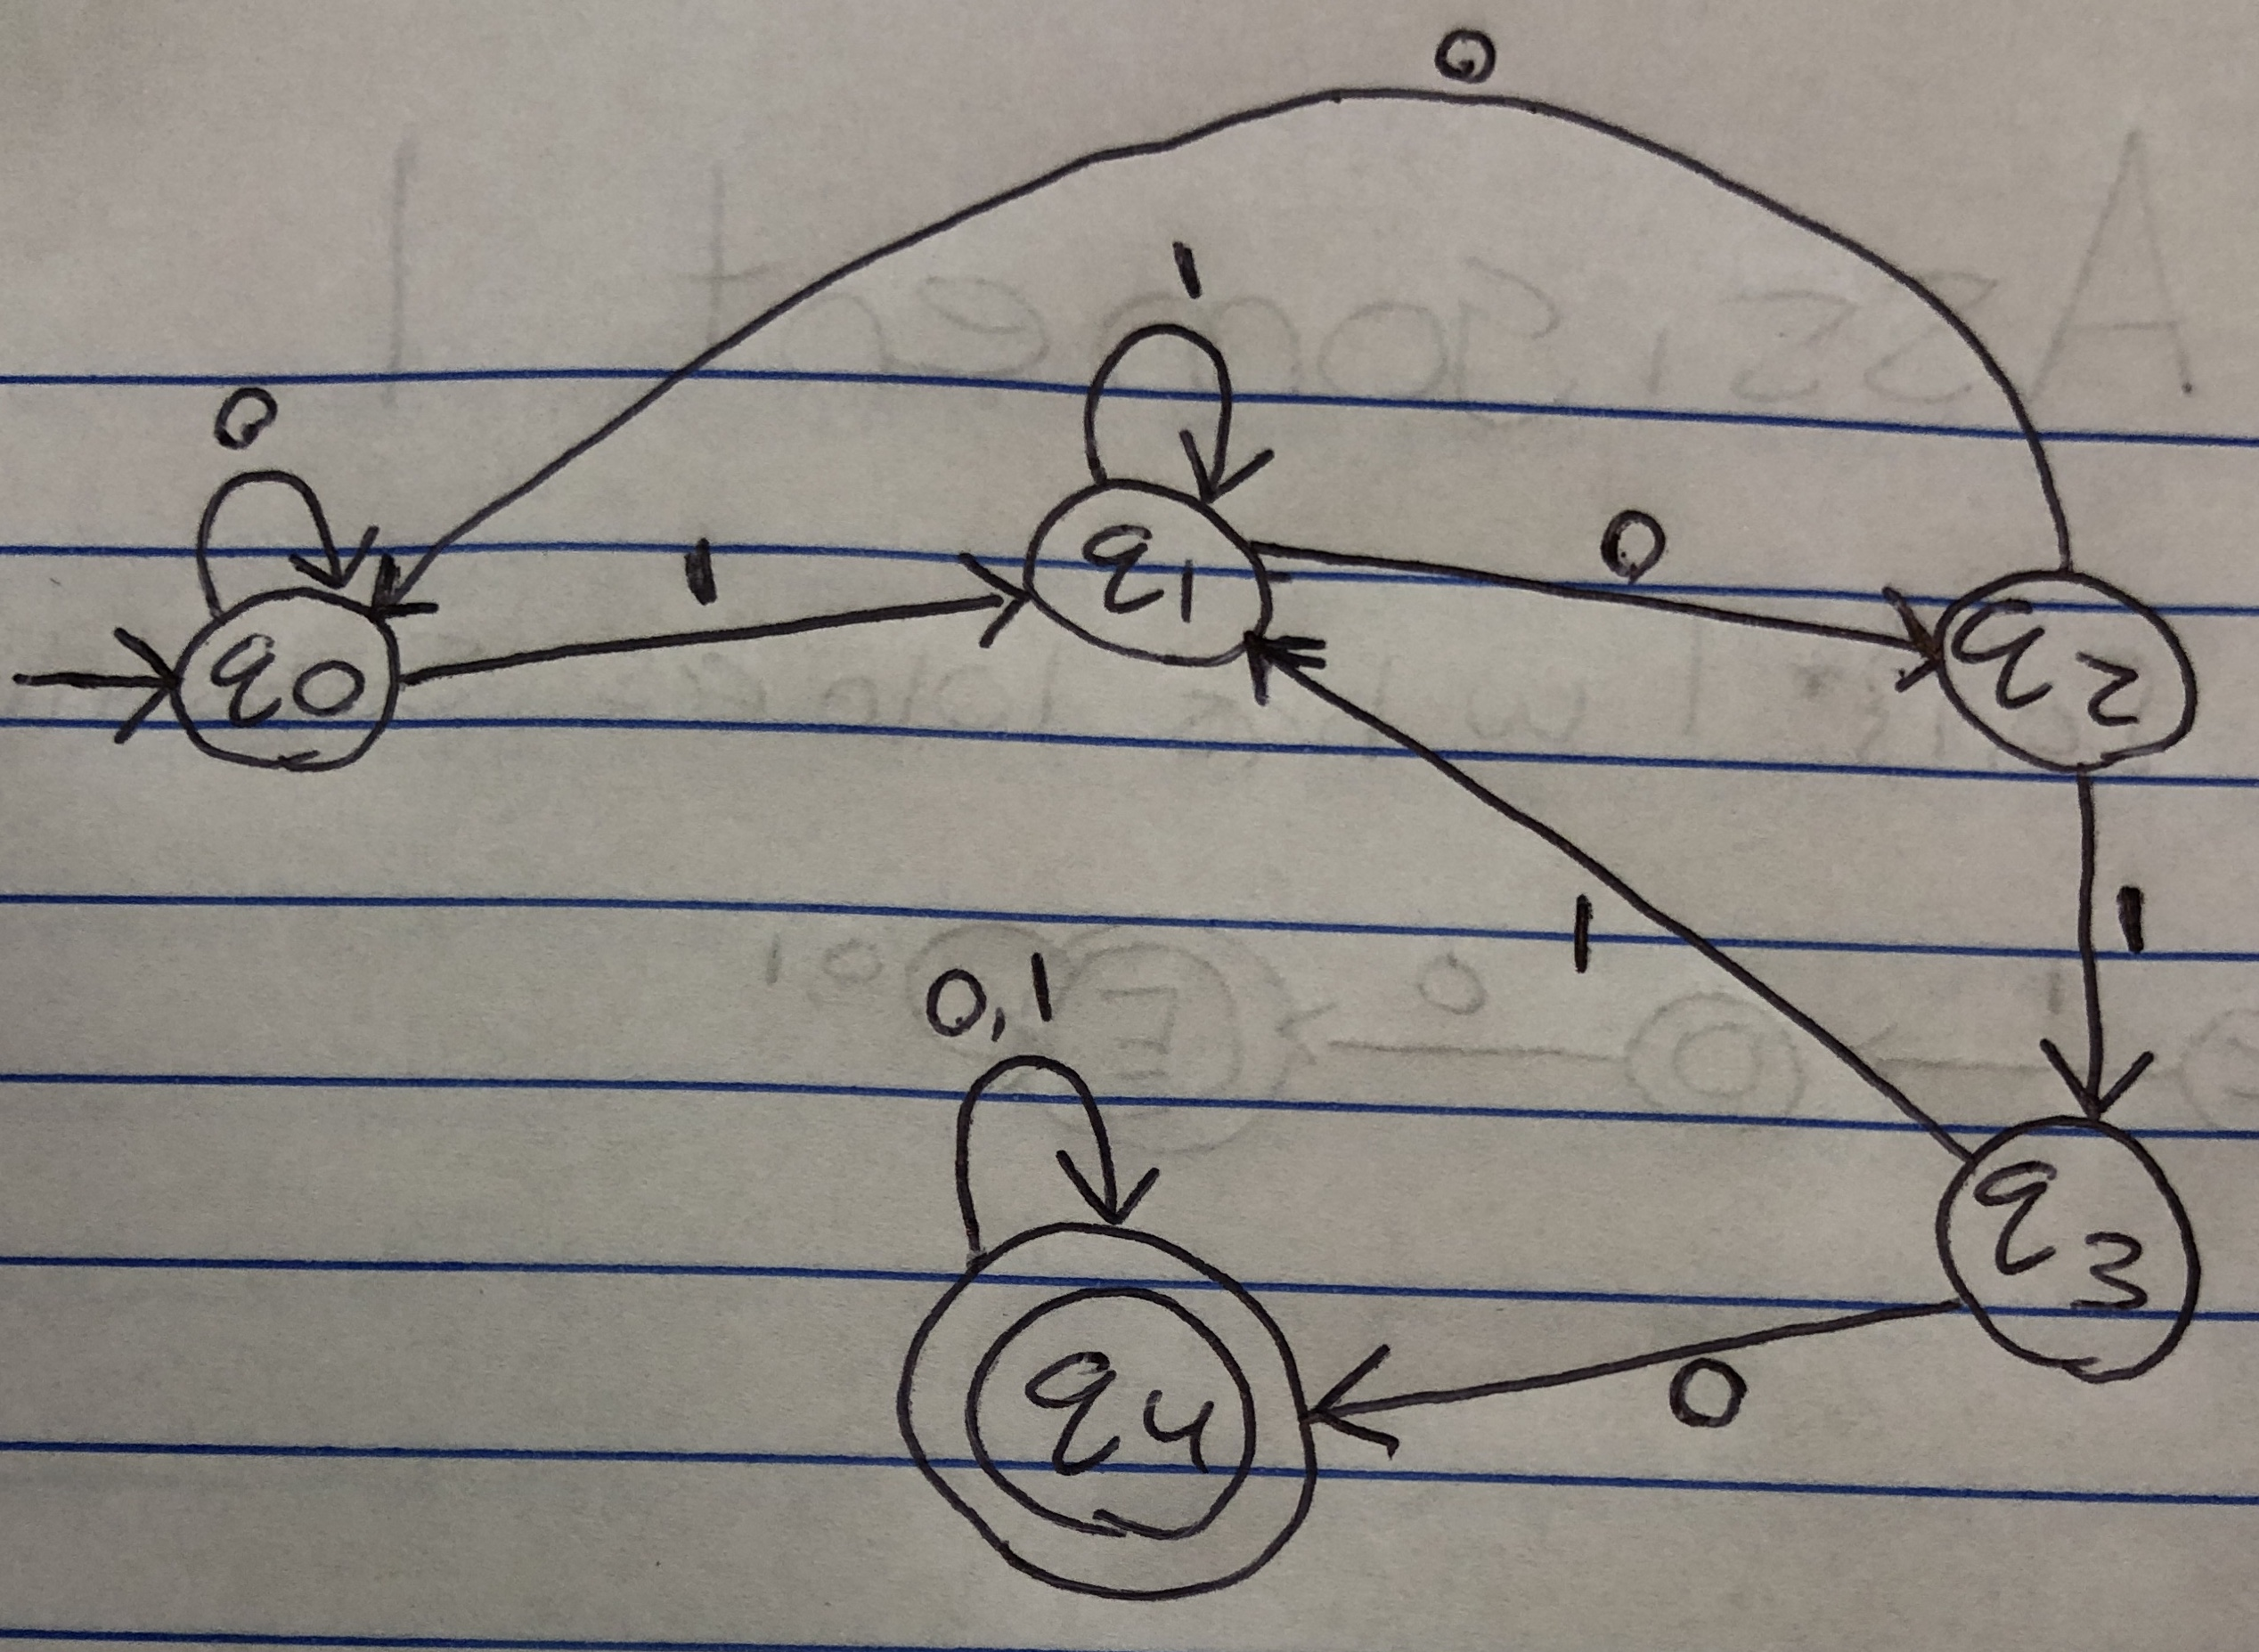 0
1
0
1
0
q0
q1
q2
1
1
0,1
q3
0
q4